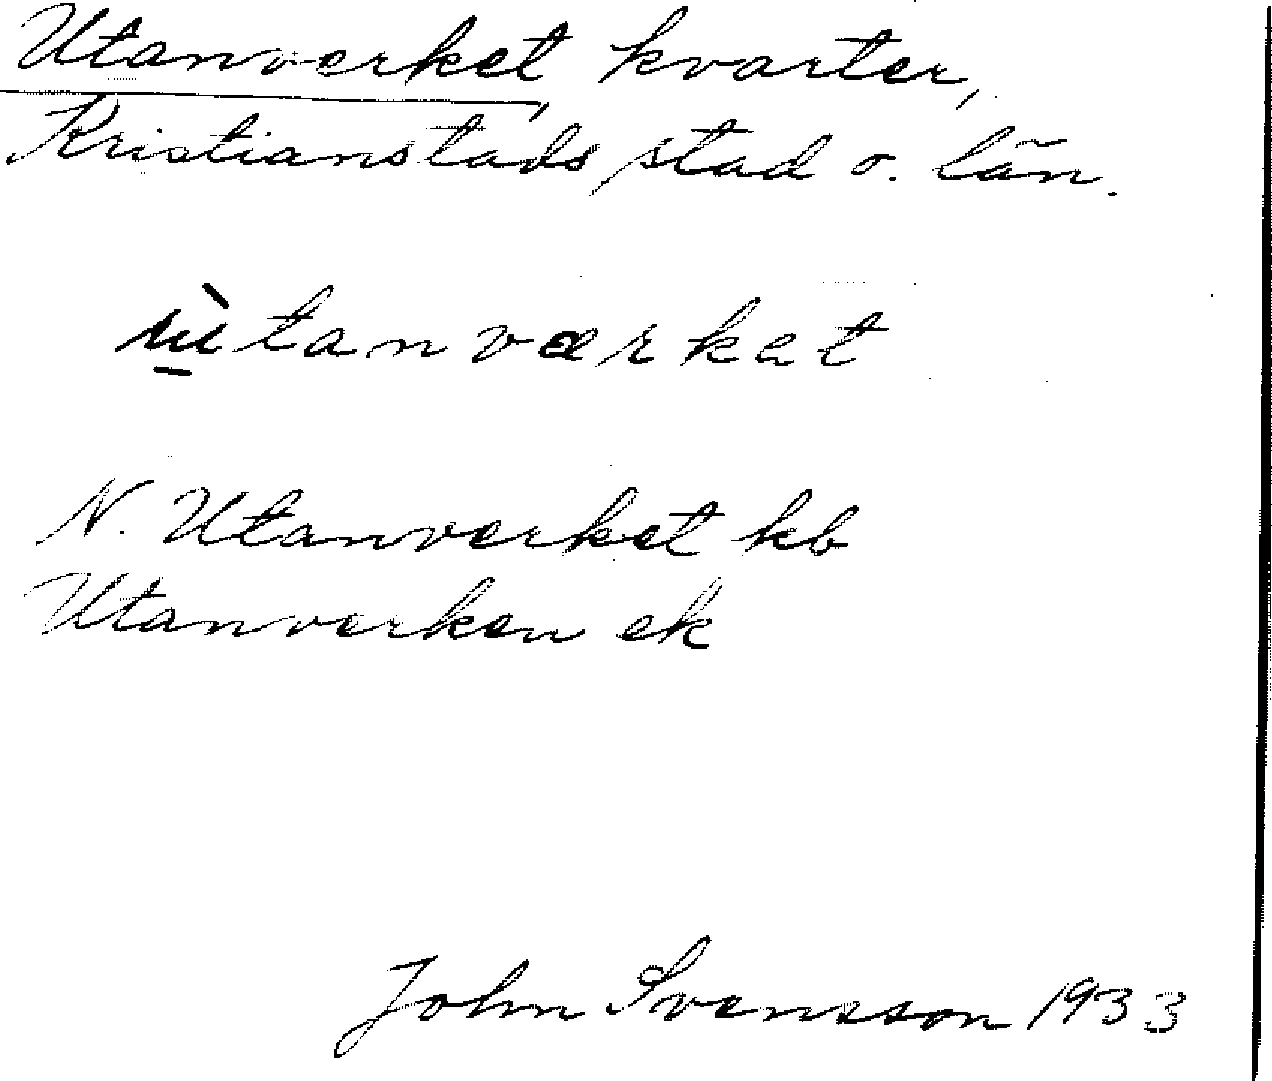 Utanverket kvarter,
Kristianstads stad o. län.
ùtanværkat
N. Utanverket kb
Utanverken ek
John Svensson 1933